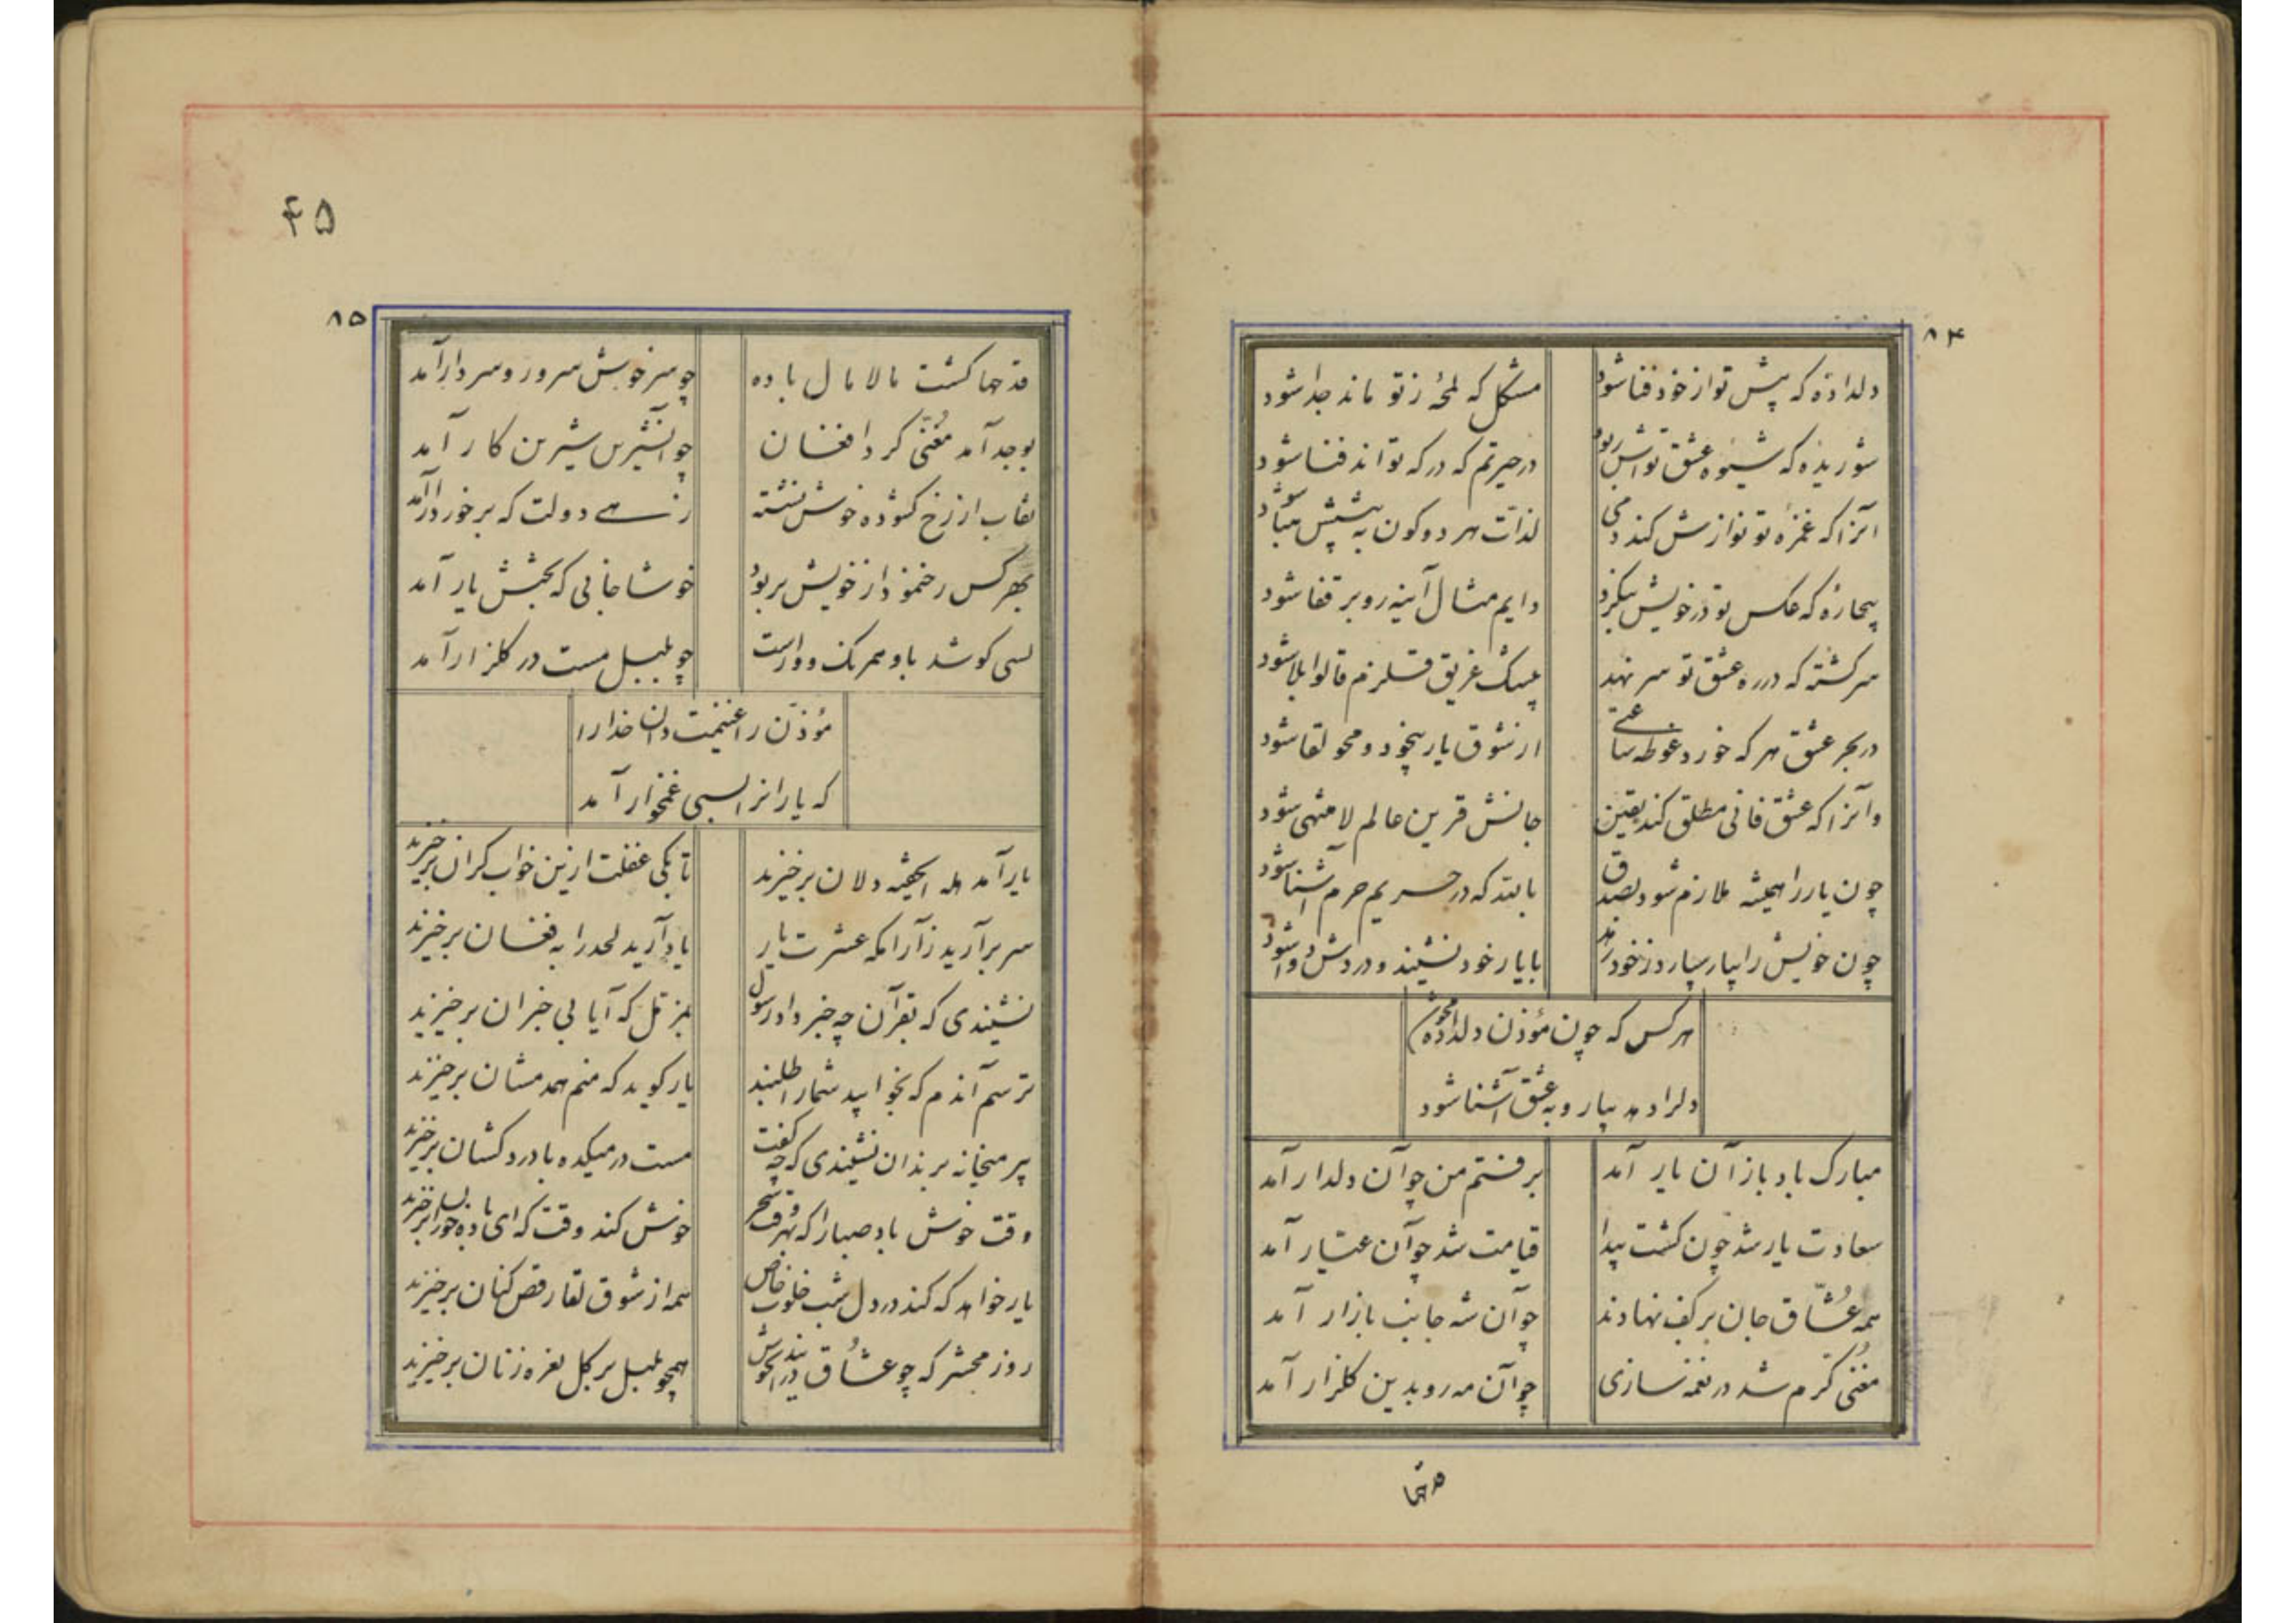 ۸۴
دلداده که پیش تو از خود فنا شود مشکل که لمحهٔ ز تو ماند جدا شود
شوریده که شیوه عشق تواش ربود در حیرتم که درکه تواند فنا شود
آنرا که غمزه تو نوازش کند دمی لذات هر دو کون به پیشش هبا شود
بیچاره که عکس تو در خویش بنگرد دایم مثال آینه رو بر قفا شود
سرکشته که در ره عشق تو سر نهد بیشک غریق قلزم قالوا بلا شود
در بحر عشق هر که خورد غوطه ساعتی از شوق یار بیخود و محو لقا شود
وآنرا که عشق فانی مطلق کند یقین جانش قرین عالم لا منتهی شود
چون یار را همیشه ملازم شود بصدق باشد که در حریم حرم آشنا شود
چون خویش را بیار سپارد ز خود رهد با یار خود نشیند و دردش دوا شود
هر کس که چون مؤذن دلداده محو شد
دل را دهد بیار و به عشق آشنا شود
مبارک باد باز آن یار آمد برفتم من چو آن دلدار آمد
سعادت یار شد چون کشت پیدا قیامت شد چو آن عیار آمد
همه عُشّاق جان بر کف نهادند چو آن شه جانب بازار آمد
مغنی کرم شد در نغمه سازی چو آن مه رو بدین کلزار آمد
قدحها
۴۵
۸۵
قدحها کشت مالامال باده چو سرخوش سرور و سردار آمد
بوجد آمد مُغنّی کرد افغان چو آن شیرین شیرین کار آمد
نقاب از رخ کشوده خوش نشسته زهے دولت که برخوردار آمد
بهر کس رخ نمود از خویش بربود خوشا جانی که بختش یار آمد
چو بلبل مست در کلزار آمد
مؤذّن را غنیمت دان خدا را
که یاران را بسی غمخوار آمد
یار آمد هله ای خفته دلان برخیزید تا بکی غفلت ازین خواب کران برخیزید
سر برآرید ز آرامکه عشرت یار یاد آرید لحد را به فغان برخیزید
نشنیدی که بقرآن چه خبر داد رسول بمزمل که آیا بی خبران برخیزید
ترسم آندم که بخوابید شما را طلبند یار کوید که منم همدمتان برخیزید
پیر میخانه برندان نشنیدی که چه کفت مست در میکده با درد کشان برخیزید
وقت خوش باد صبا را که بهر وقت سحر خوش کند وقت که ای
یار خواهد که کند در دل شب خلوت خاص همه از شوق لقا رقص کنان برخیزید
روز محشر که چو عشّاق در آغوش همچو بلبل بر کل نعره زنان برخیزید